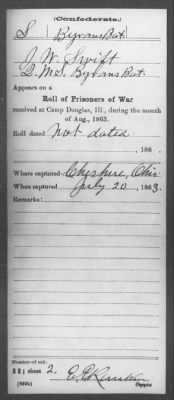 (Confederate.)
S Byrans Bat.
J. W. Swift
Q.M.S. Byrans Bat.
Appears on a
Roll of Prisoners of War
received at Camp Douglas, Ill., during the month
of Aug., 1863.
Roll dated Not dated.
, 186 .
Where captured Cheshire, Ohio
When captured July 20, 1863.
Remarks:
Number of roll:
sheet 2.
Copyist